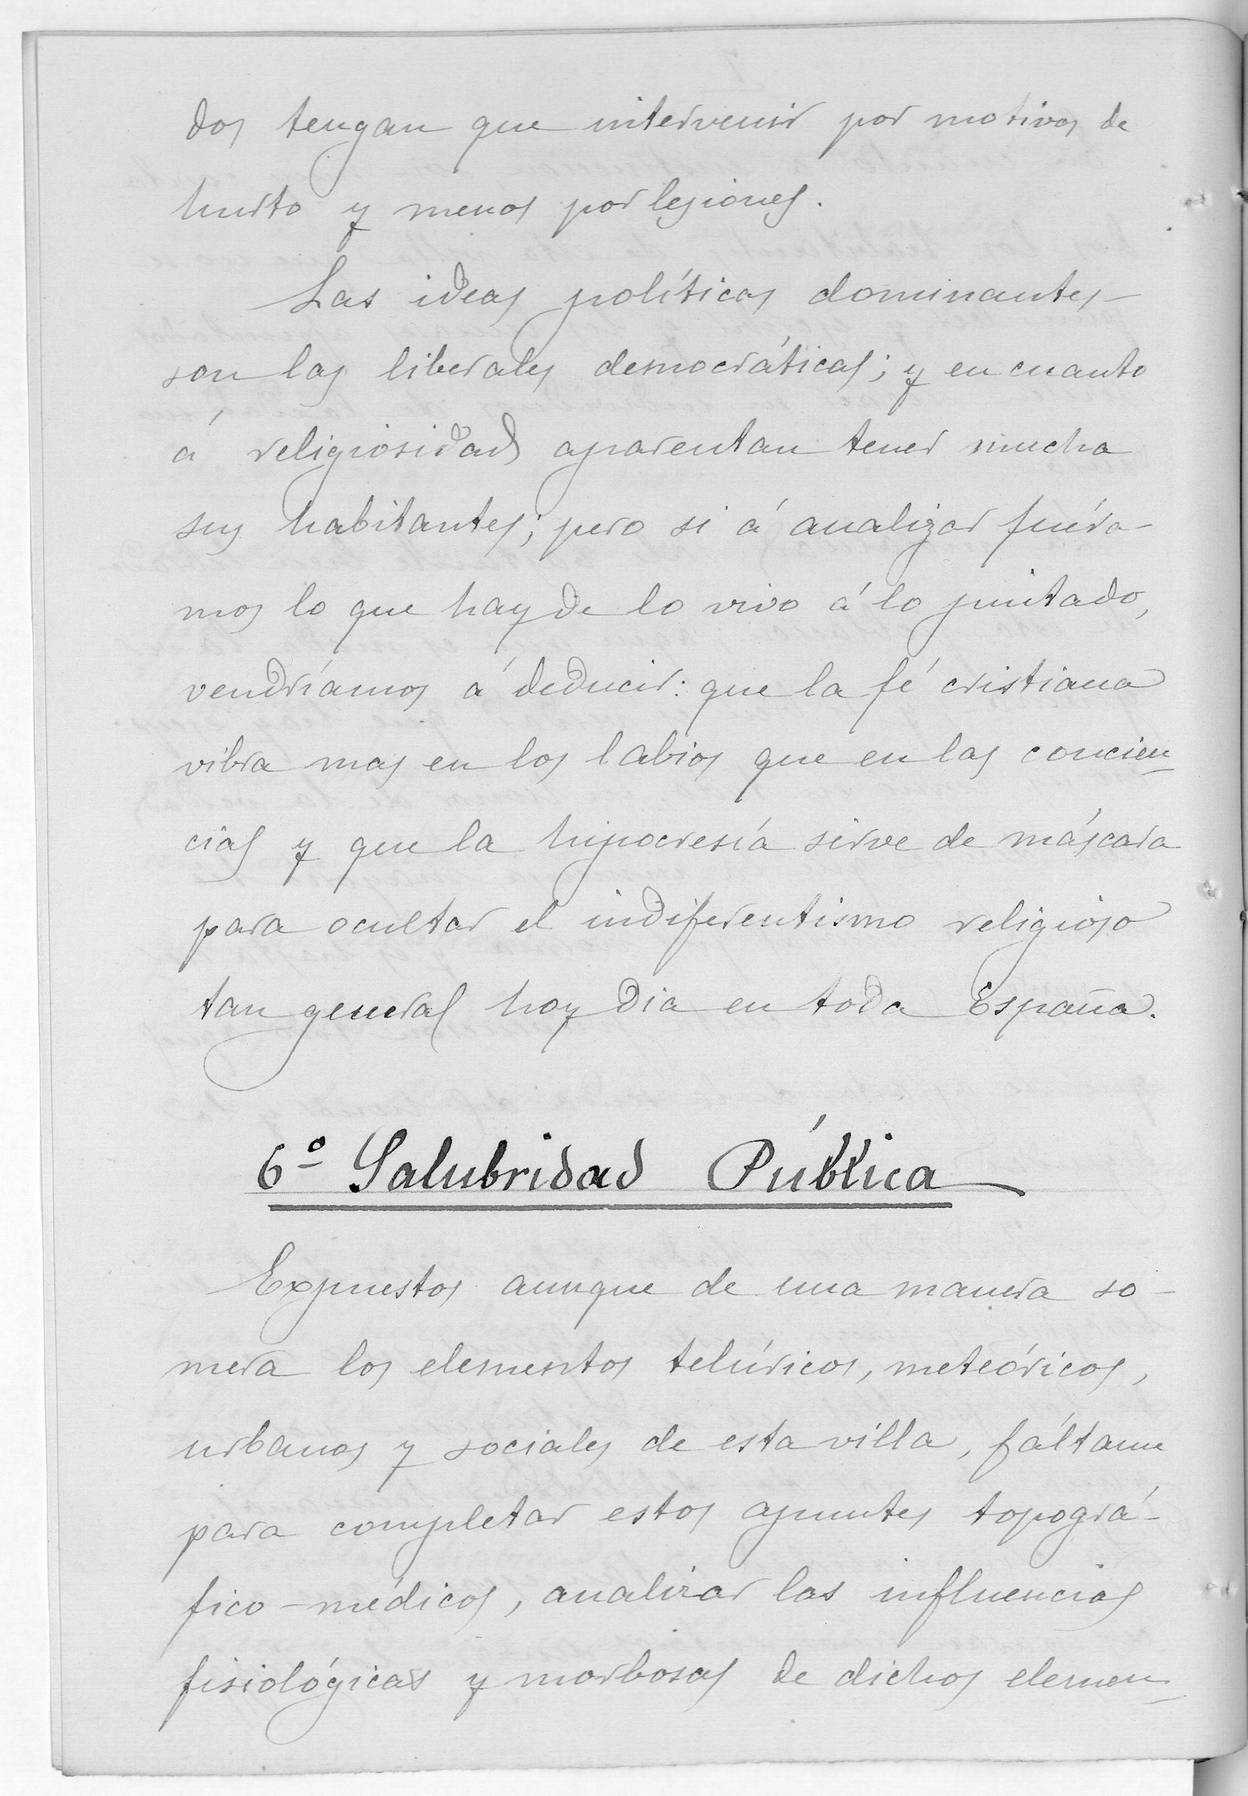 dos tengan que intervenir por motivos de
hurto y menos por lesiones.
Las ideas políticas dominantes
son las liberales democráticas; y en cuanto
á religiosidad aparentan tener mucha
sus habitantes; pero si á analizar fuéra-
mos lo que hay de lo vivo á lo pintado,
vendríamos á deducir: que la fé cristiana
vibra mas en los labios que en las concien-
cias y que la hipocresía sirve de máscara
para ocultar el indiferentismo religioso
tan general hoy dia en toda España.
6º Salubridad Pública
Expuestos aunque de una manera so-
mera los elementos telúricos, meteóricos,
urbanos y sociales de esta villa, fáltame
para completar estos apuntes topográ-
fico-médicos, analizar las influencias
fisiológicas y morbosas de dichos elemen-